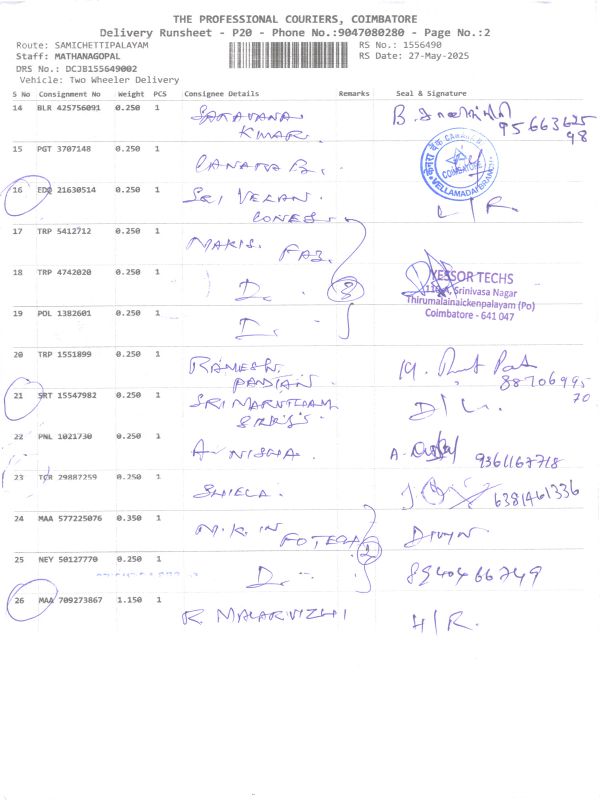 THE PROFESSIONAL COURIERS, COIMBATORE
Delivery Runsheet - P20 - Phone No.:9047080280 - Page No.:2
Route: SAMICHETTIPALAYAM RS No.: 1556490
Staff: MATHANAGOPAL RS Date: 27-May-2025
DRS No.: DCJB155649002
Vehicle: Two Wheeler Delivery
S No Consignment No Weight PCS Consignee Details Remarks Seal & Signature
14 BLR 425756091 0.250 1 SARAVANA B.
KUMAR. 95663625
98
15 PGT 3707148 0.250 1 CANARA B. केनरा बैंक CANARA B
COIMBATORE
VELLAMADAI BRANCH
16 EDQ 21630514 0.250 1 SRI VELAN. L/R.
CONES.
17 TRP 5412712 0.250 1 MARIS. FAB.
18 TRP 4742020 0.250 1 D. 3 YESSOR TECHS
Srinivasa Nagar
Thirumalainaickenpalayam (Po)
19 POL 1382601 0.250 1 D. Coimbatore - 641 047
20 TRP 1551899 0.250 1 RAMESH
PANDIAN. 88706995
70
21 SRT 15547982 0.250 1 SRI MARUTHAM D/L.
22 PNL 1021730 0.250 1 A. NISHA. A. 9361167718
23 TCR 29887259 0.250 1 SHIELA. 6381461336
24 MAA 577225076 0.350 1 M.K. IN
FOTECH 2
25 NEY 50127770 0.250 1 D. 8940466749
26 MAA 709273867 1.150 1 R. MALARVIZHI H/R.